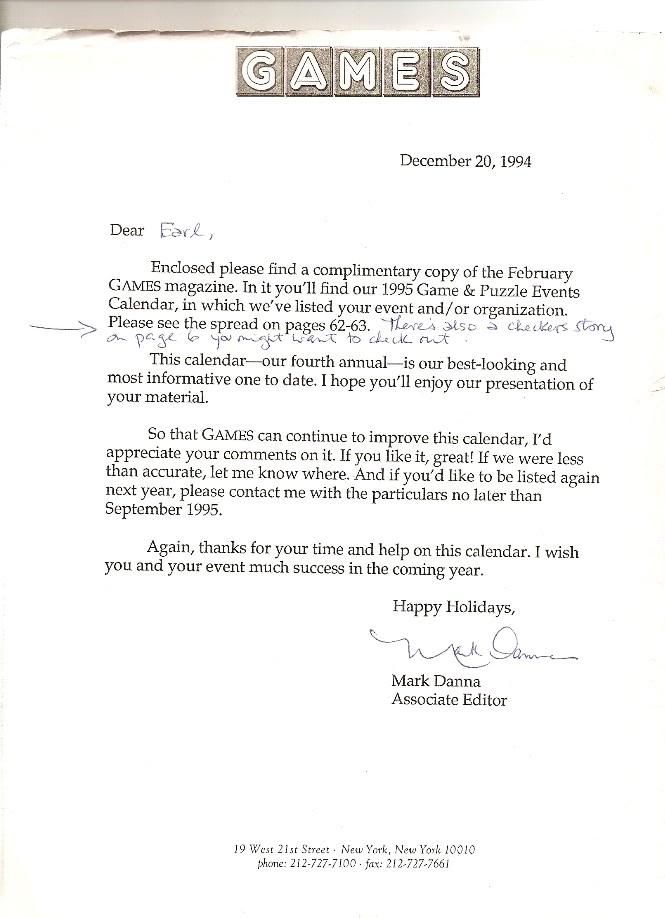 GAMES
December 20, 1994
Dear Earl,
Enclosed please find a complimentary copy of the February
GAMES magazine. In it you'll find our 1995 Game & Puzzle Events
Calendar, in which we've listed your event and/or organization.
Please see the spread on pages 62-63. There's also a checkers story
on page 6 you might want to check out.
This calendar—our fourth annual—is our best-looking and
most informative one to date. I hope you'll enjoy our presentation of
your material.
So that GAMES can continue to improve this calendar, I'd
appreciate your comments on it. If you like it, great! If we were less
than accurate, let me know where. And if you'd like to be listed again
next year, please contact me with the particulars no later than
September 1995.
Again, thanks for your time and help on this calendar. I wish
you and your event much success in the coming year.
Happy Holidays,
Mark Danna
Mark Danna
Associate Editor
19 West 21st Street · New York, New York 10010
phone: 212-727-7100 · fax: 212-727-7661